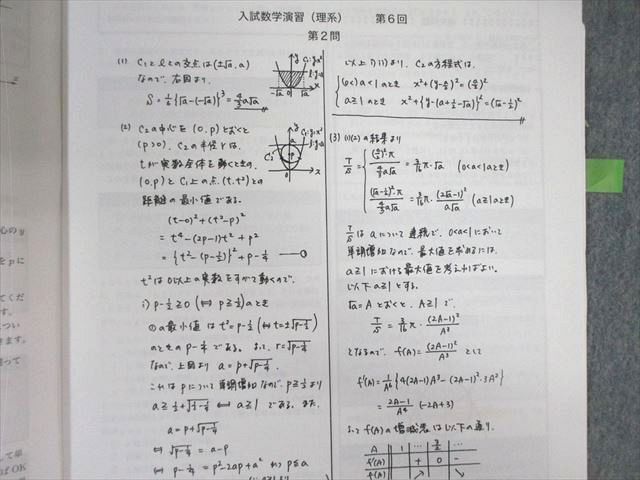 入試数学演習（理系） 第6回
第2問
(1) C₁とℓとの交点は (±√a, a)
なので、右図より、
S = 1/6{√a-(-√a)}³ = 4/3 a√a
(2) C₂の中心を (0, p) とおくと
(p>0)、C₂の半径は、
tが実数全体を動くときの、
(0, p) と C₁上の点 (t, t²) との
距離の最小値である。
(t-0)² + (t²-p)²
= t⁴ - (2p-1)t² + p²
= {t² - (p-1/2)}² + p - 1/4 ―①
t²は0以上の実数をすべて動くので、
i) p-1/2 ≧ 0 (⇔ p≧1/2) のとき
①の最小値は t² = p-1/2 (⇔ t=±√(p-1/2))
のときの p-1/4 である。よって、r=√(p-1/4)
なので、上図より a = p+√(p-1/4)
これは pについて単調増加なので、p≧1/2より
a ≧ 1/2+√(1/2-1/4) ⇔ a≧1 である。また、
a = p+√(p-1/4)
⇔ √(p-1/4) = a-p
⇔ p-1/4 = p²-2ap+a² かつ p≦a
以上 i) ii) より、C₂の方程式は、
0<a<1のとき x²+(y-a/2)² = (a/2)²
a≧1のとき x²+{y-(a+1/2-√a)}² = (√a-1/2)²
(3) (1)(2)の結果より
T/S = (a/2)²・π / 4/3 a√a = 3/16 π・√a (0<a<1のとき)
(√a-1/2)²・π / 4/3 a√a = 3/16 π・(2√a-1)²/a√a (a≧1のとき)
T/S は aについて連続で、0<a<1において
単調増加なので、最大値を求めるには、
a≧1における最大値を考えればよい。
以下 a≧1とする。
√a=A とおくと、A≧1で、
T/S = 3/16 π・(2A-1)²/A³
となるので、f(A) = (2A-1)²/A³ として
f'(A) = 1/A⁶{4(2A-1)A³-(2A-1)²・3A²}
= 2A-1/A⁴ (-2A+3)
よって f(A)の増減表は以下の通り。
A 1 … 3/2 …
f'(A) + 0 -
f(A) ↗ ↘